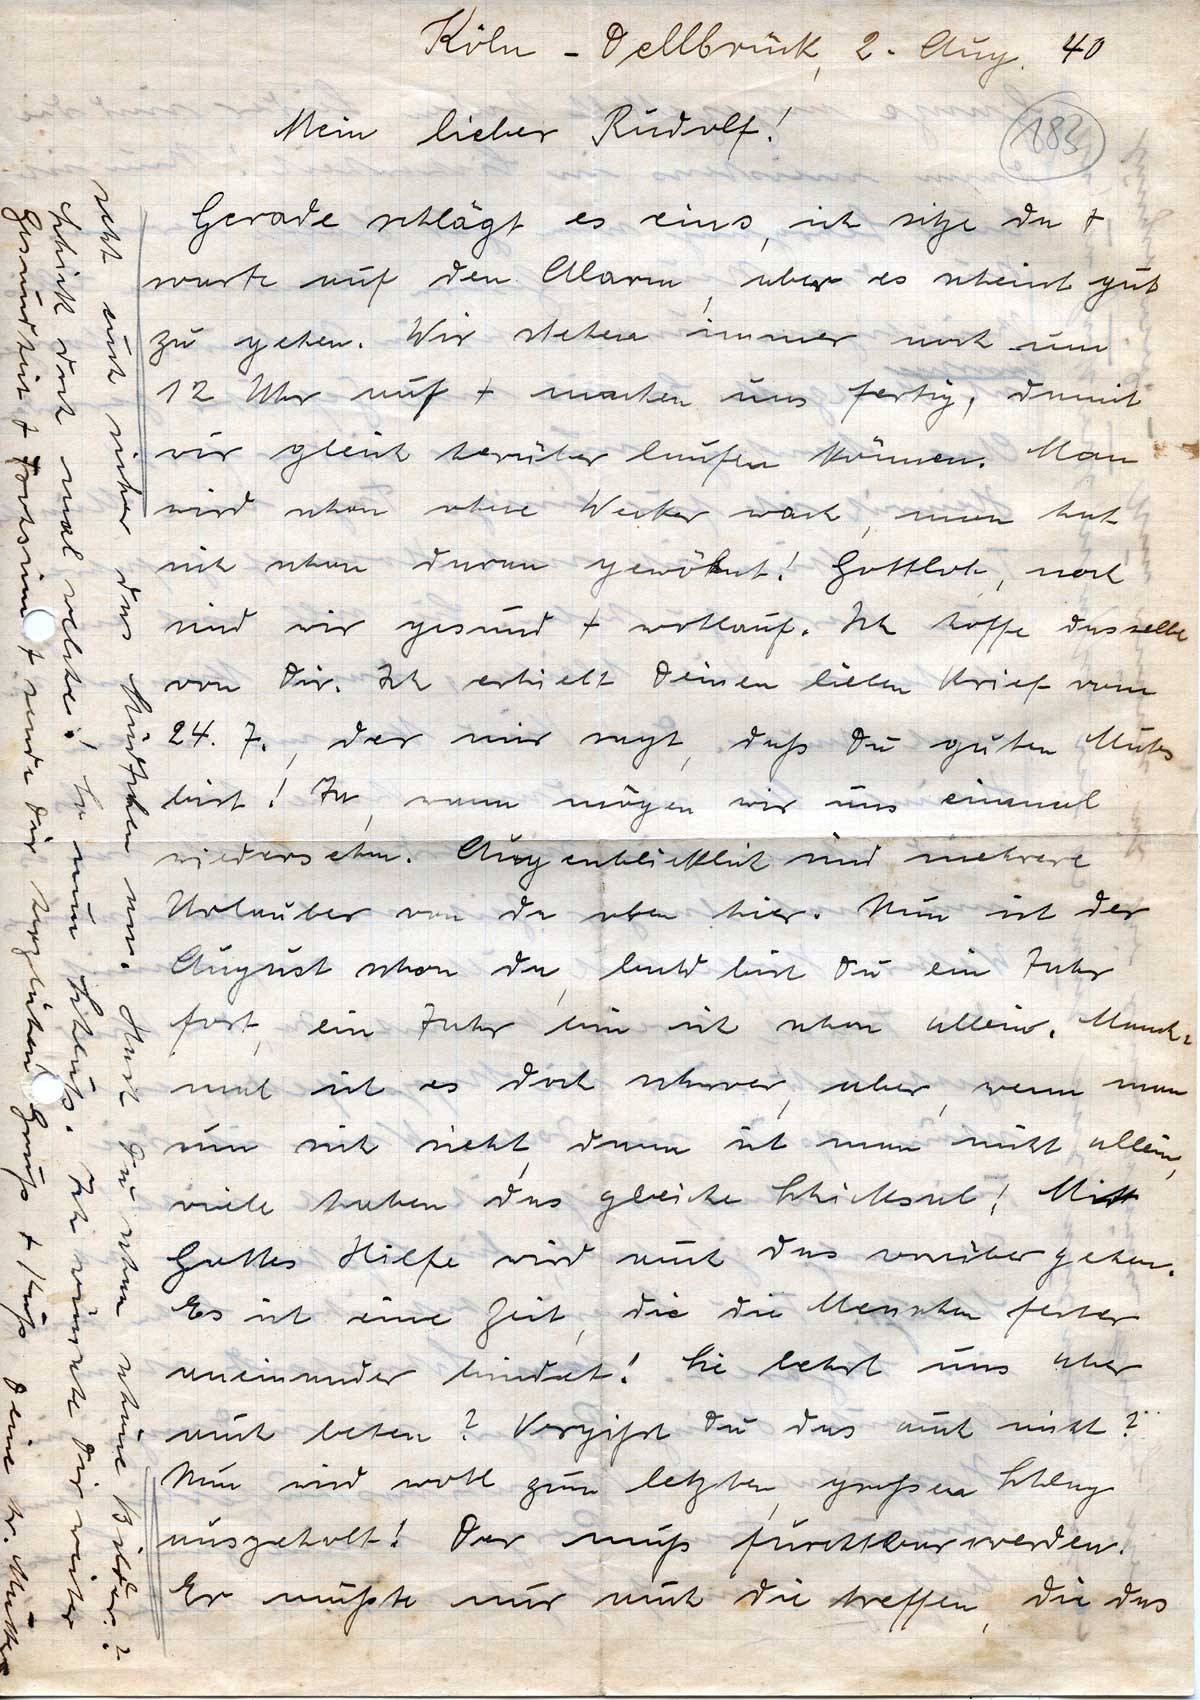 Köln - Dellbrück, 2. Aug. 40
183
Mein lieber Rudolf!
Gerade schlägt es eins, ich sitze da +
warte auf den Alarm, aber es scheint gut
zu gehen. Wir stehen immer noch um
12 Uhr auf + machen uns fertig, damit
wir gleich herüber laufen können. Man
wird schon ohne Wecker wach, man hat
sich schon daran gewöhnt! Gottlob, noch
sind wir gesund + wohlauf. Ich hoffe dasselbe
von Dir. Ich erhielt Deinen lieben Brief vom
24. 7., der mir sagt, daß Du guten Muts
bist! Ja, wann mögen wir uns einmal
wiedersehn. Augenblicklich sind mehrere
Urlauber von da oben hier. Nun ist der
August schon da, bald bist Du ein Jahr
fort, ein Jahr bin ich schon allein. Manch=
mal ist es doch schwer, aber, wenn man
um sich sieht, dann ist man nicht allein,
viele haben das gleiche Schicksal! Mit
Gottes Hilfe wird auch das vorüber gehen.
Es ist eine Zeit, die die Menschen fester
aneinander bindet! Sie lehrt uns aber
auch beten? Vergißt Du das auch nicht?
Nun wird wohl zum letzten, großen Schlag
ausgeholt! Der muß furchtbar werden.
Er müßte nur auch die treffen, die das
sieht auch sicher das Städtchen an. Hast Du schon schöne Bilder?
Schick doch mal welche! So nun Schluß. Ich wünsche Dir weiter
Gesundheit + Frohsinn + sende Dir herzlichen Gruß + Kuß Deine lb. Mutter